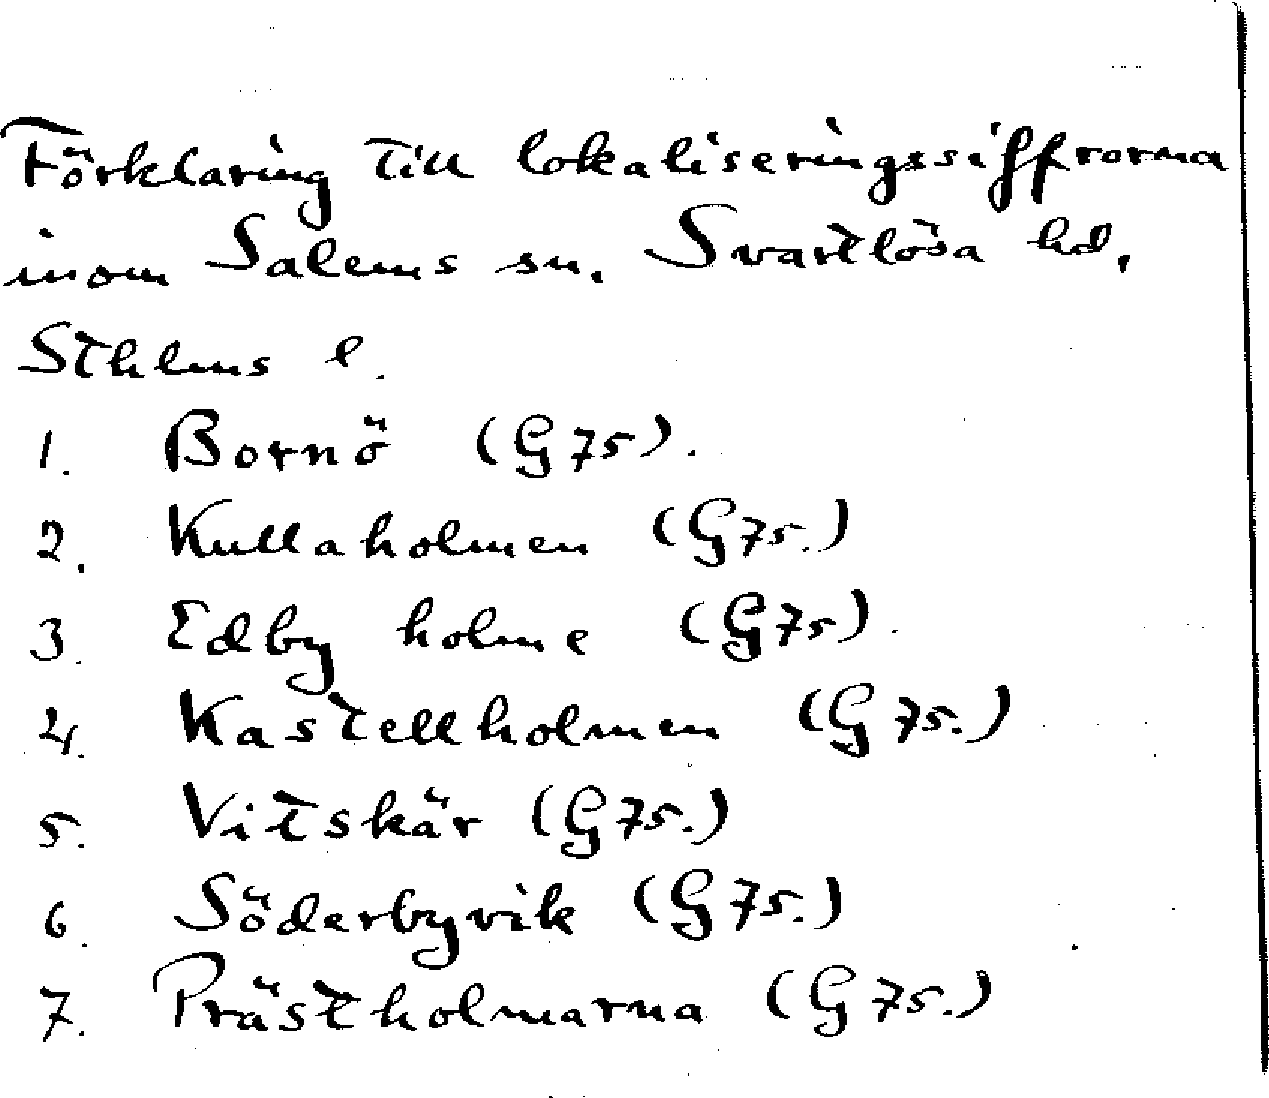 Förklaring till lokaliseringssiffrorna
inom Salems sn. Svartlösa hd.
Sthlms l.
1. Bornö (G 75).
2. Kullaholmen (G 75.)
3. Edby holme (G 75).
4. Kastellholmen (G 75.)
5. Vitskär (G 75.)
6. Söderbyvik (G 75.)
7. Prästholmarna (G 75.)